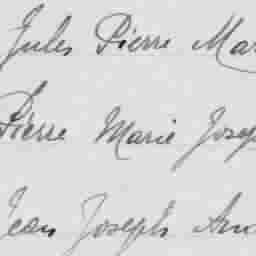 Jules Pierre Mar
Pierre Marie Josep
Jean Joseph